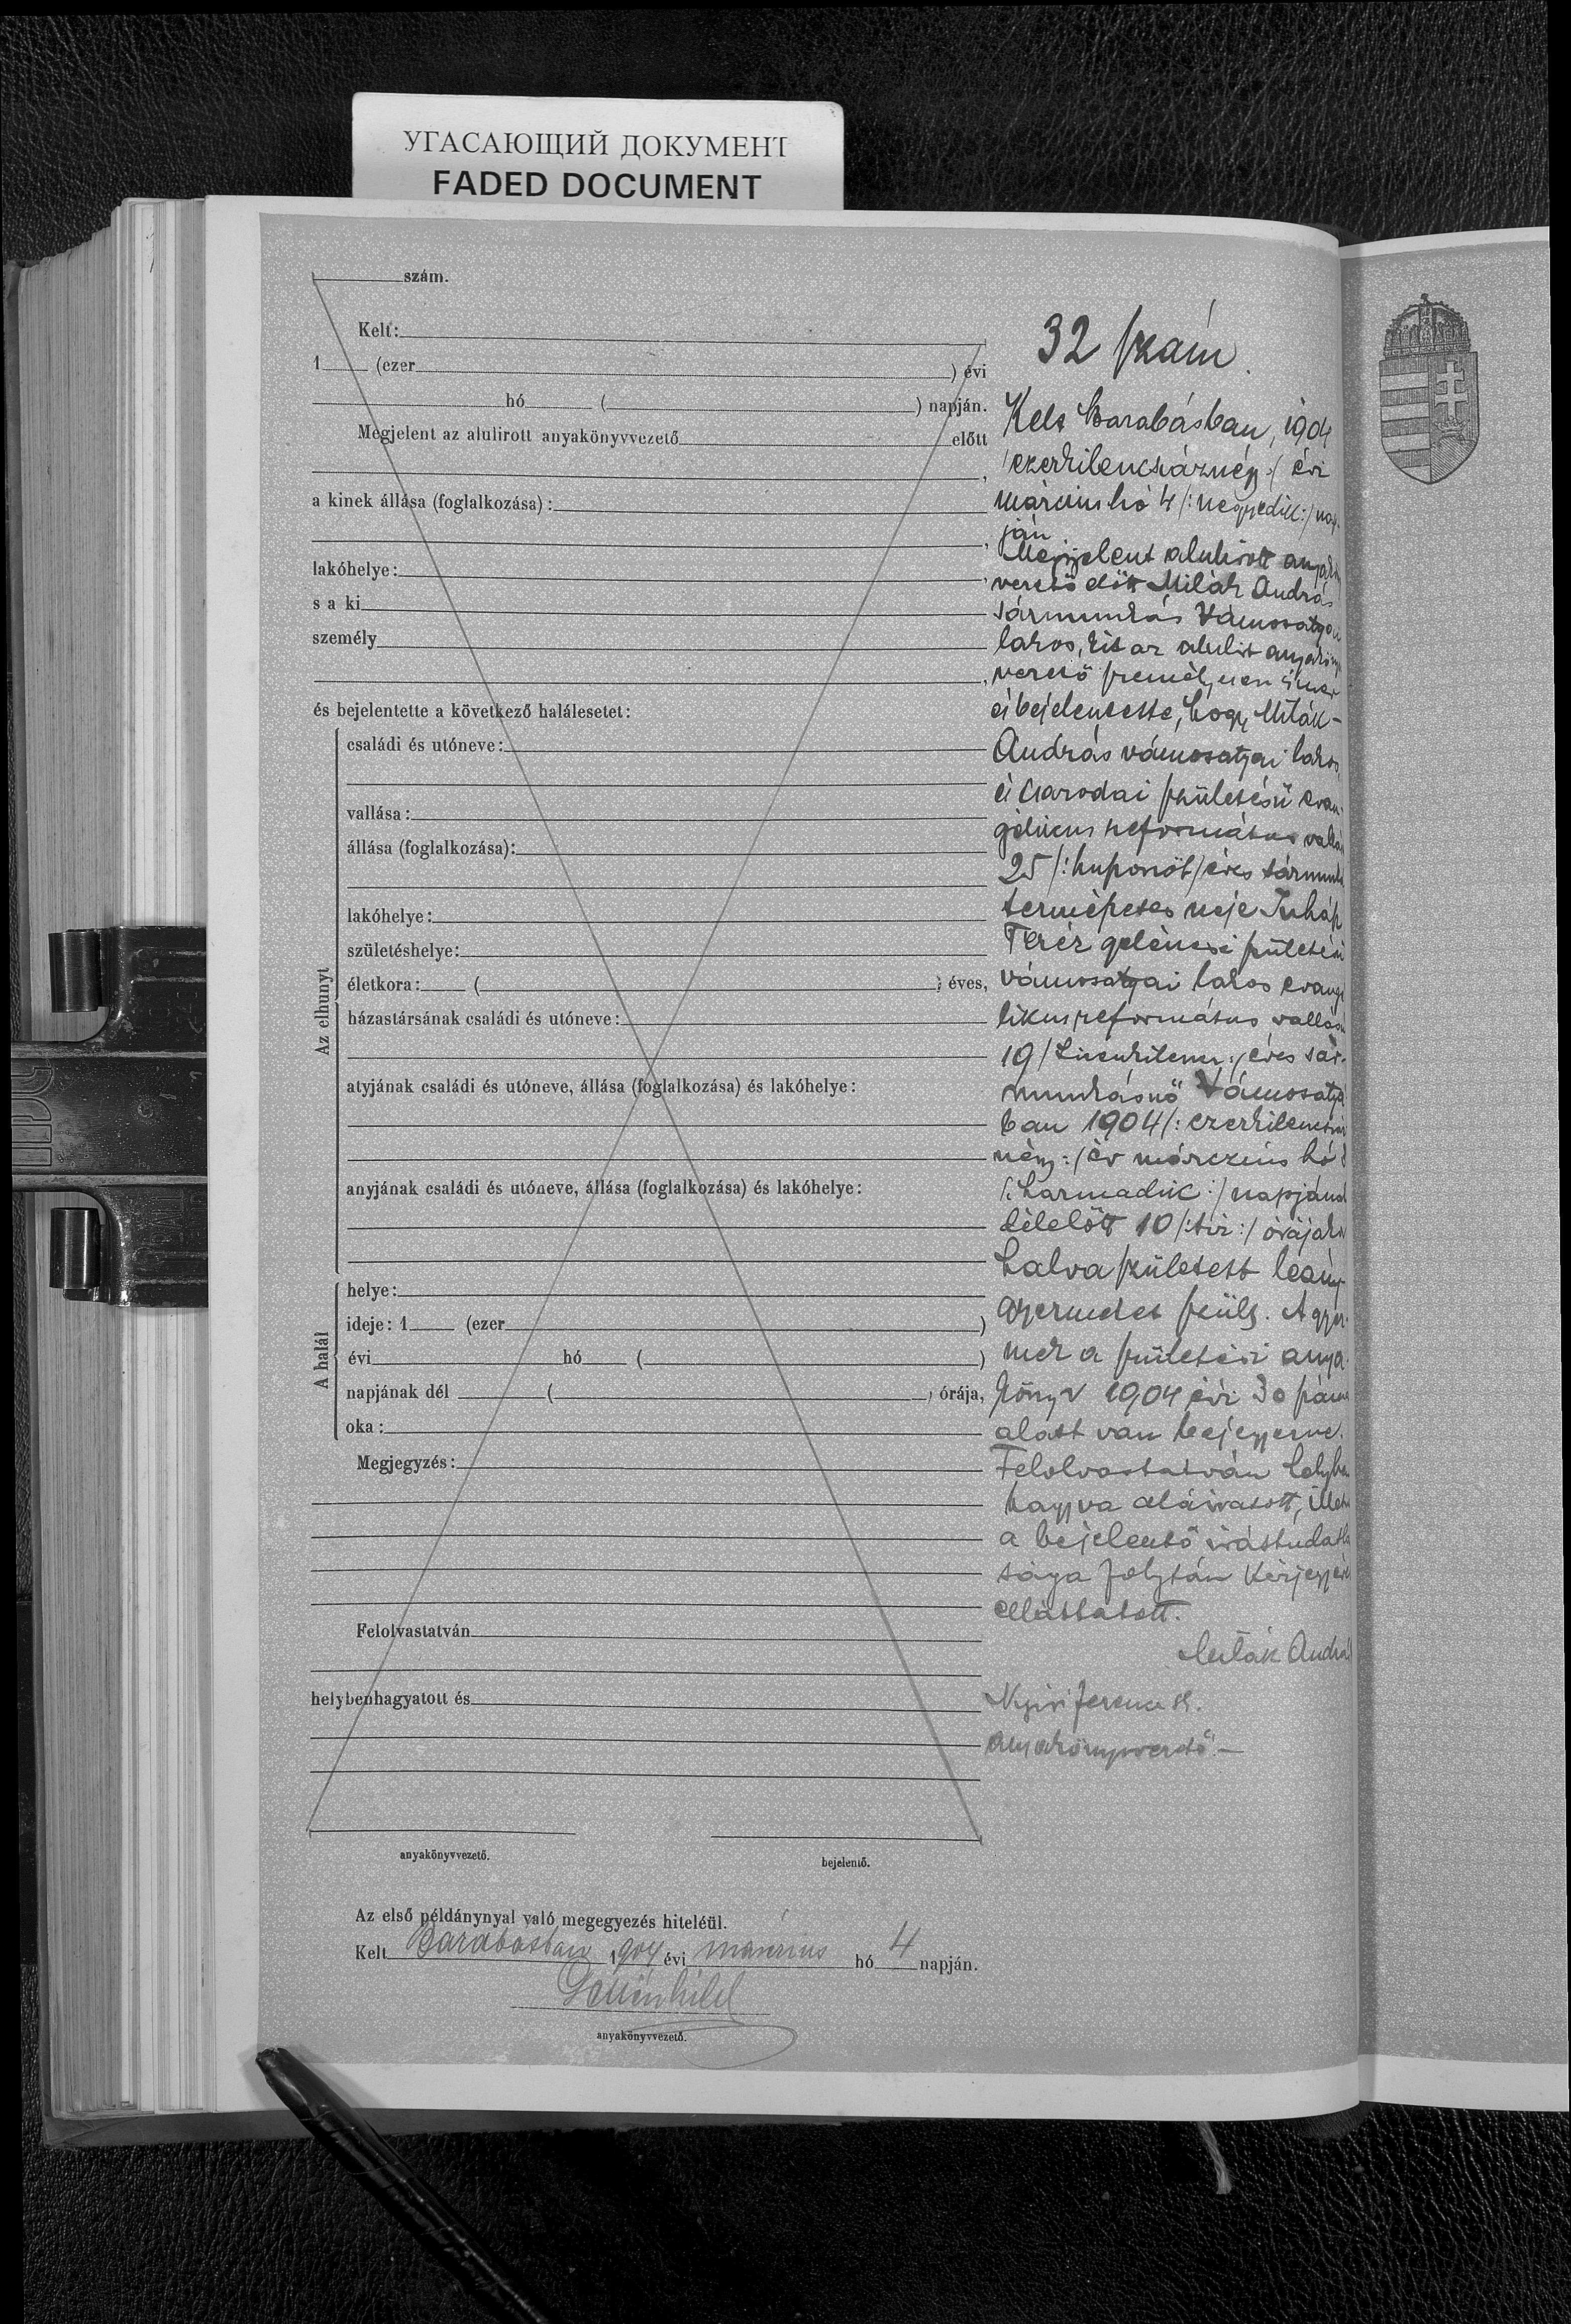 УГАСАЮЩИЙ ДОКУМЕНТ
FADED DOCUMENT
szám.
Kelt:
1 (ezer ) évi
hó ( ) napján.
Megjelent az alulirott anyakönyvvezető előtt
,
a kinek állása (foglalkozása):
,
lakóhelye: ,
s a ki
személy
,
és bejelentette a következő halálesetet:
Az elhunyt
családi és utóneve:
vallása:
állása (foglalkozása):
lakóhelye:
születéshelye:
életkora: ( ) éves,
házastársának családi és utóneve:
atyjának családi és utóneve, állása (foglalkozása) és lakóhelye:
anyjának családi és utóneve, állása (foglalkozása) és lakóhelye:
A halál
helye:
ideje: 1 (ezer )
évi hó ( )
napjának dél ( ) órája,
oka:
Megjegyzés:
Felolvastatván
helybenhagyatott és
anyakönyvvezető.
bejelentő.
Az első példánynyal való megegyezés hiteléül.
Kelt Barabásban 1904 évi márczius hó 4 napján.
anyakönyvvezető.
32 szám.
Kelt Barabásban, 1904
/:ezerkilencszáznégy:/ évi
márcziushó 4 /:negyedik:/ nap-
ján.
Megjelent alulirott anyakön
vezető előtt Milák András
sármunkás Vámosatyai
lakos, kit az alulirt anyakönyv
vezető személyesen ismer
és bejelentette, hogy Miták-
András vámosatyai lakos,
és Csarodai születésü evan-
gélicus református vallás
25 /:huszonöt:/ éves sármunk
természetes neje Juhász
Teréz gelénesi születésü
vámosatyai lakos evangé
likus református vallású
19 /:tizenkilencz:/ éves sár-
munkásnő Vámosatyá
ban 1904 /:ezerkilenczszáz
négy:/ év márczius hó 3
/:harmadik:/ napjának
délelőtt 10 /:tiz:/ órájakor
halva született leány-
gyermeket szült. A gyer-
mek a születési anya-
könyv 1904 évi 30 száma
alatt van bejegyezve.
Felolvastatván helyben
hagyva aláiratott, illet
a bejelentő irástudatla
sága folytán kézjegyével
elláttatott.
Miták András
Nyiri Ferencz sk.
anyakönyvvezető.-